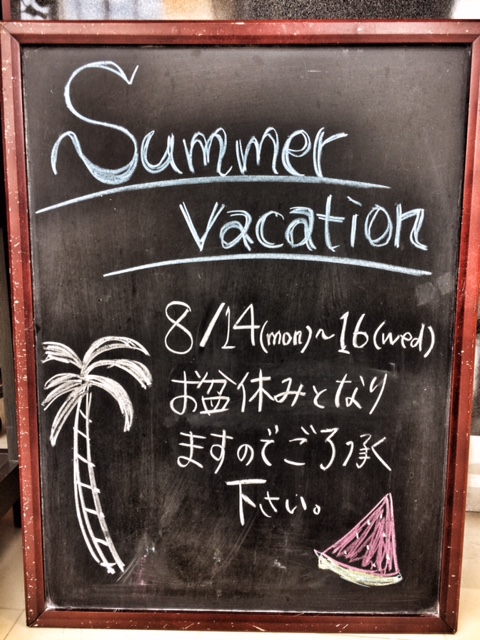 Summer
vacation
8/14(mon)~16(wed)
お盆休みとなり
ますのでご了承く
下さい。